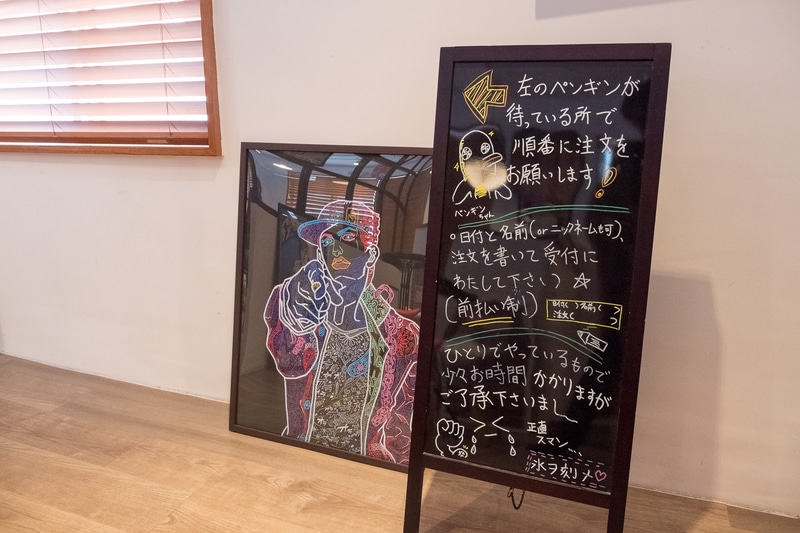 左のペンギンが
待っている所で
順番に注文を
お願いします!
ペンギン
ちゃん
○日付と名前(orニックネームも可)、
注文を書いて受付に
わたして下さい☆
(前払い制)
日付( )名前( )
注文( )
ひとりでやっているもので
少々お時間かかりますが
ご了承下さいまし〜
正直
スマン…
氷ヲ刻メ♡